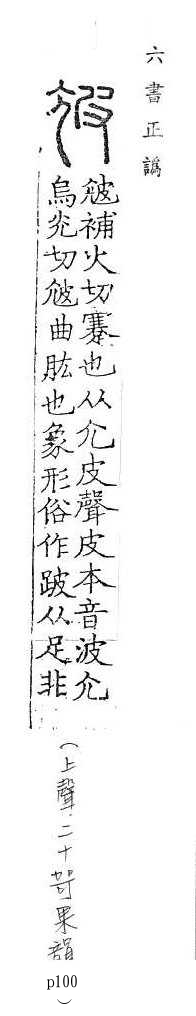 六書正譌
㝿補火切蹇也从尢皮聲皮本音波尢
烏光切㝿曲肱也象形俗作跛从足非
(上聲.二十哿果韻 p100)